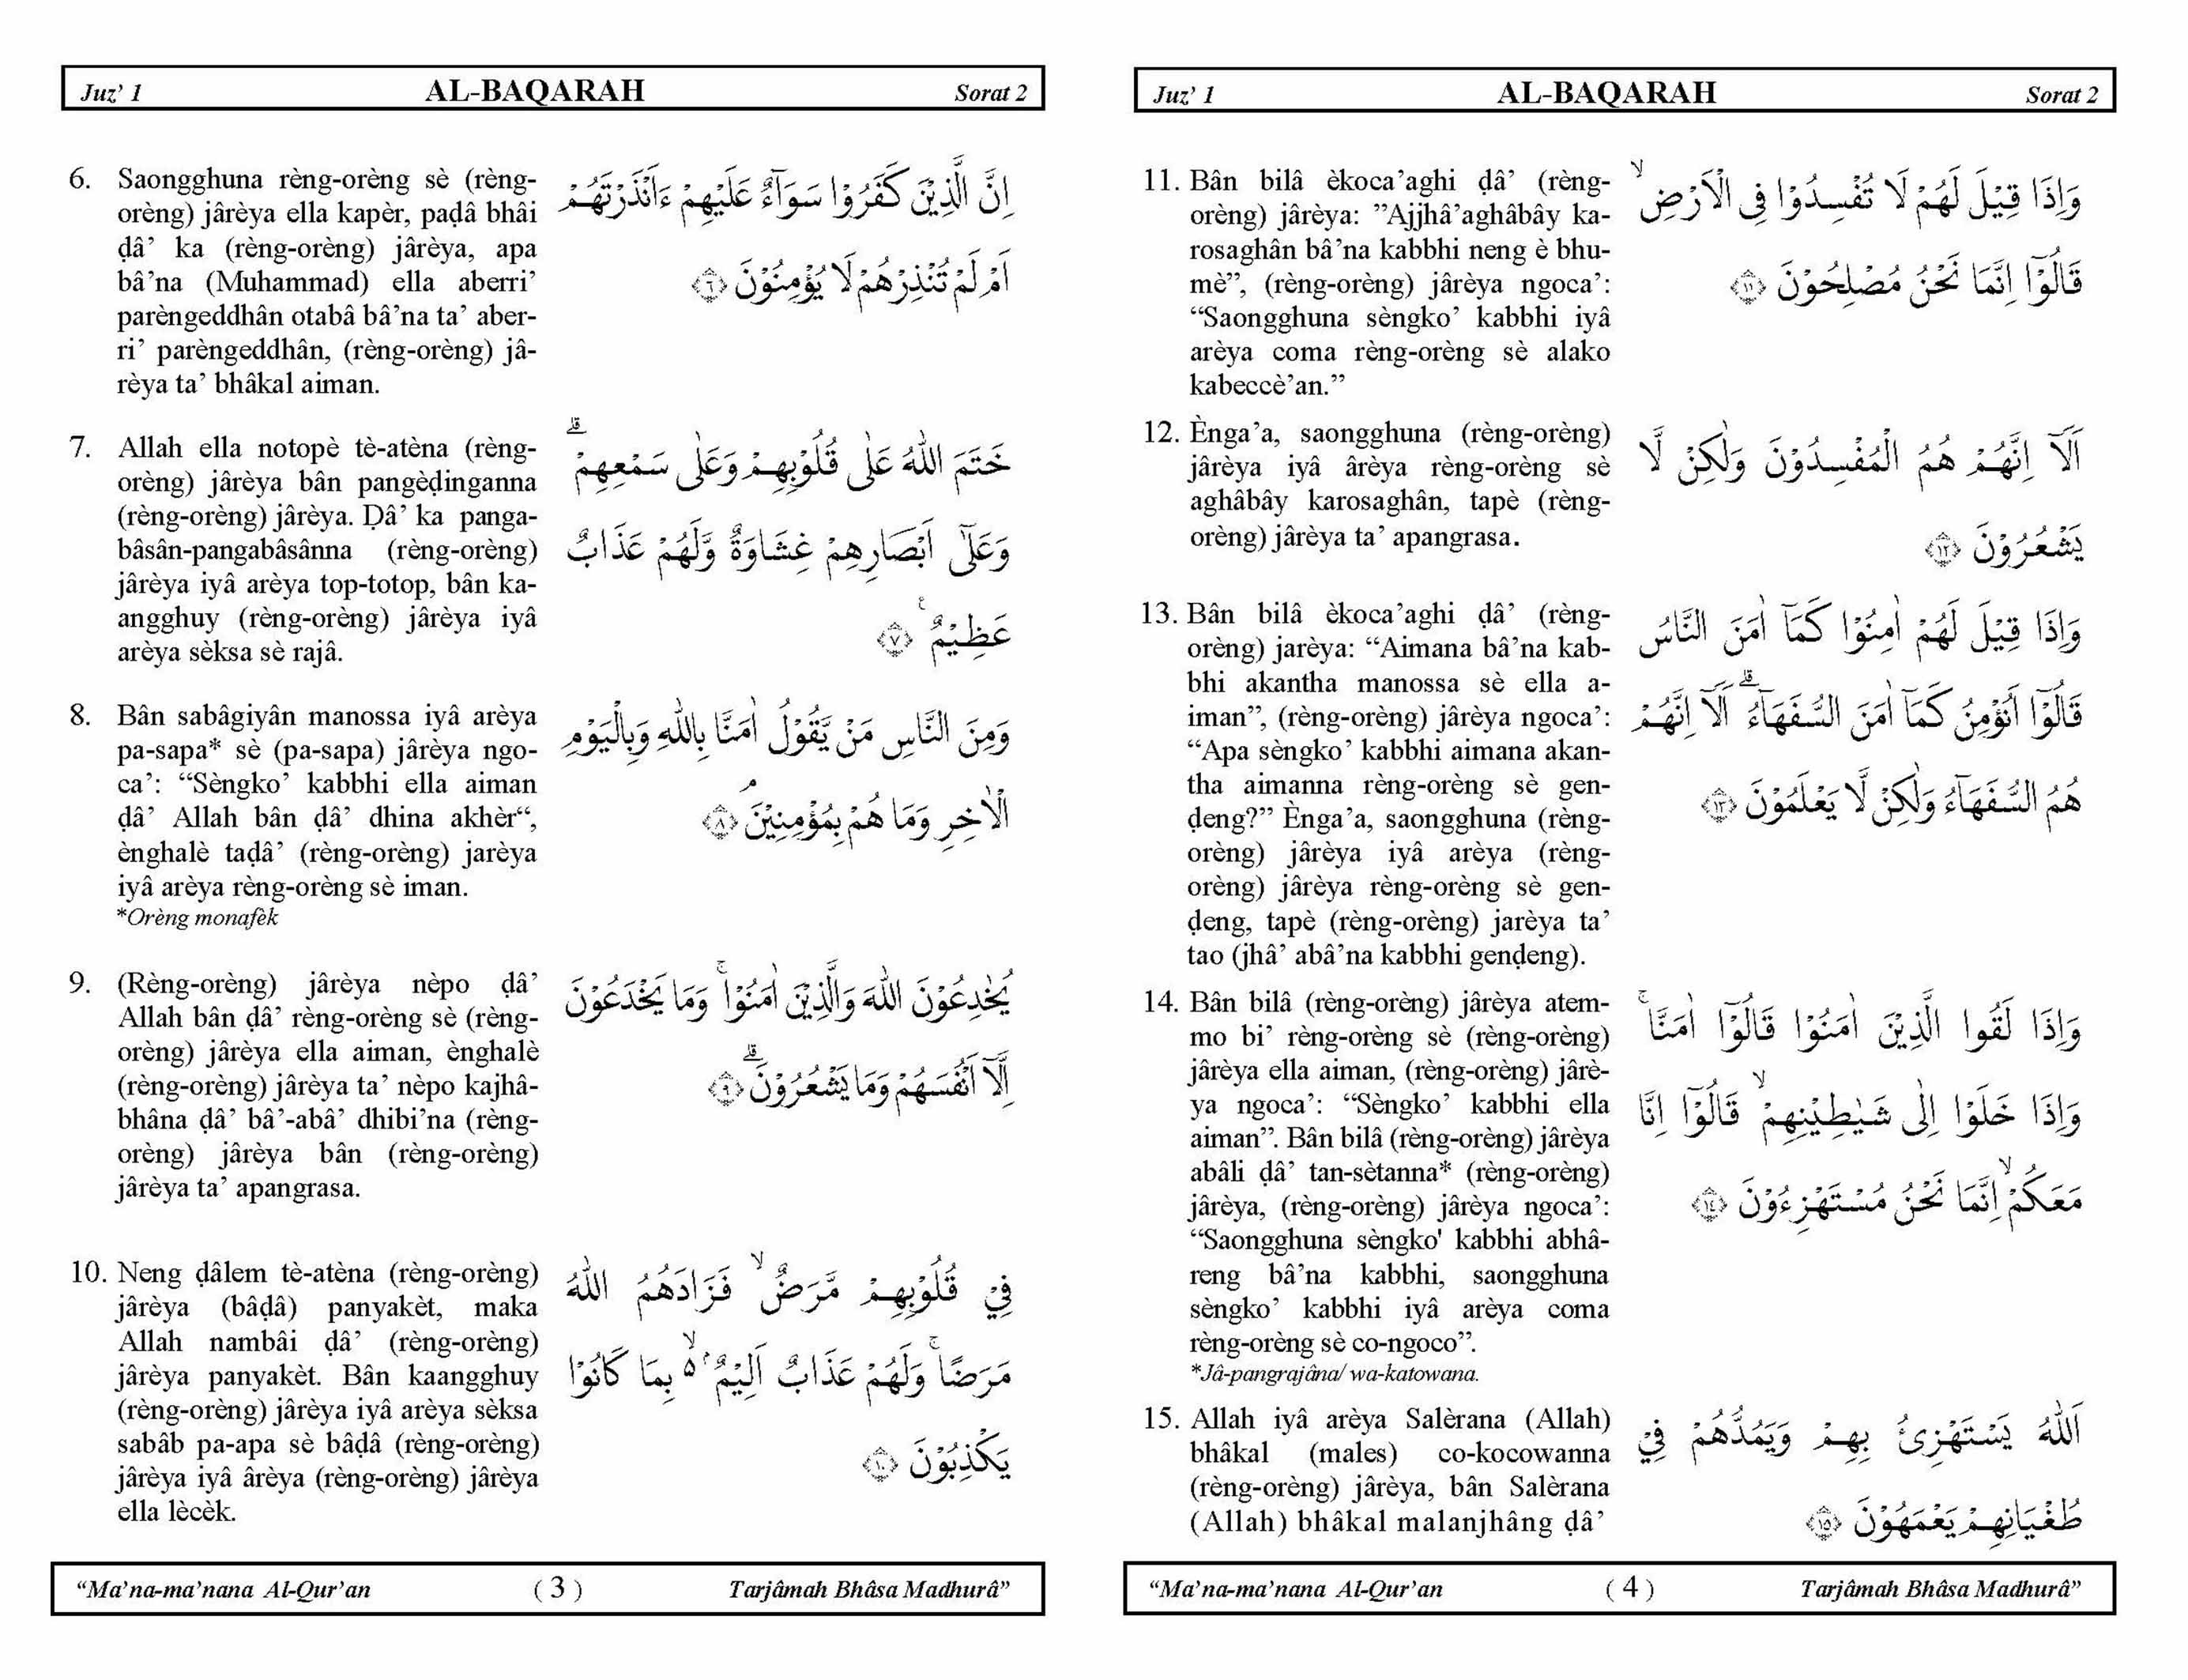 Juz’ 1 AL-BAQARAH Sorat 2
6. Saongghuna rèng-orèng sè (rèng-
orèng) jârèya ella kapèr, paḍâ bhâi
ḍâ’ ka (rèng-orèng) jârèya, apa
bâ’na (Muhammad) ella aberri’
parèngeddhân otabâ bâ’na ta’ aber-
ri’ parèngeddhân, (rèng-orèng) jâ-
rèya ta’ bhâkal aiman.
اِنَّ الَّذِيْنَ كَفَرُوْا سَوَاۤءٌ عَلَيْهِمْ ءَاَنْذَرْتَهُمْ
اَمْ لَمْ تُنْذِرْهُمْ لَا يُؤْمِنُوْنَ ﴿٦﴾
7. Allah ella notopè tè-atèna (rèng-
orèng) jârèya bân pangèḍinganna
(rèng-orèng) jârèya. Ḍâ’ ka panga-
bâsân-pangabâsânna (rèng-orèng)
jârèya iyâ arèya top-totop, bân ka-
angghuy (rèng-orèng) jârèya iyâ
arèya sèksa sè rajâ.
خَتَمَ اللّٰهُ عَلٰى قُلُوْبِهِمْ وَعَلٰى سَمْعِهِمْ ۗ
وَعَلٰٓى اَبْصَارِهِمْ غِشَاوَةٌ وَّلَهُمْ عَذَابٌ
عَظِيْمٌ ࣖ ﴿٧﴾
8. Bân sabâgiyân manossa iyâ arèya
pa-sapa* sè (pa-sapa) jârèya ngo-
ca’: “Sèngko’ kabbhi ella aiman
ḍâ’ Allah bân ḍâ’ dhina akhèr“,
ènghalè taḍâ’ (rèng-orèng) jarèya
iyâ arèya rèng-orèng sè iman.
*Orèng monafèk
وَمِنَ النَّاسِ مَنْ يَّقُوْلُ اٰمَنَّا بِاللّٰهِ وَبِالْيَوْمِ
الْاٰخِرِ وَمَا هُمْ بِمُؤْمِنِيْنَۘ ﴿٨﴾
9. (Rèng-orèng) jârèya nèpo ḍâ’
Allah bân ḍâ’ rèng-orèng sè (rèng-
orèng) jârèya ella aiman, ènghalè
(rèng-orèng) jârèya ta’ nèpo kajhâ-
bhâna ḍâ’ bâ’-abâ’ dhibi’na (rèng-
orèng) jârèya bân (rèng-orèng)
jârèya ta’ apangrasa.
يُخٰدِعُوْنَ اللّٰهَ وَالَّذِيْنَ اٰمَنُوْا ۚ وَمَا يَخْدَعُوْنَ
اِلَّآ اَنْفُسَهُمْ وَمَا يَشْعُرُوْنَۗ ﴿٩﴾
10. Neng ḍâlem tè-atèna (rèng-orèng)
jârèya (bâḍâ) panyakèt, maka
Allah nambâi ḍâ’ (rèng-orèng)
jârèya panyakèt. Bân kaangghuy
(rèng-orèng) jârèya iyâ arèya sèksa
sabâb pa-apa sè bâḍâ (rèng-orèng)
jârèya iyâ ârèya (rèng-orèng) jârèya
ella lècèk.
فِيْ قُلُوْبِهِمْ مَّرَضٌ ۙ فَزَادَهُمُ اللّٰهُ
مَرَضًا ۚ وَلَهُمْ عَذَابٌ اَلِيْمٌ ۢ ەۙ بِمَا كَانُوْا
يَكْذِبُوْنَ ﴿١٠﴾
“Ma’na-ma’nana Al-Qur’an ( 3 ) Tarjâmah Bhâsa Madhurâ”
Juz’ 1 AL-BAQARAH Sorat 2
11. Bân bilâ èkoca’aghi ḍâ’ (rèng-
orèng) jârèya: ”Ajjhâ’aghâbây ka-
rosaghân bâ’na kabbhi neng è bhu-
mè”, (rèng-orèng) jârèya ngoca’:
“Saongghuna sèngko’ kabbhi iyâ
arèya coma rèng-orèng sè alako
kabeccè’an.”
وَاِذَا قِيْلَ لَهُمْ لَا تُفْسِدُوْا فِى الْاَرْضِ ۙ
قَالُوْٓا اِنَّمَا نَحْنُ مُصْلِحُوْنَ ﴿١١﴾
12. Ènga’a, saongghuna (rèng-orèng)
jârèya iyâ ârèya rèng-orèng sè
aghâbây karosaghân, tapè (rèng-
orèng) jârèya ta’ apangrasa.
اَلَآ اِنَّهُمْ هُمُ الْمُفْسِدُوْنَ وَلٰكِنْ لَّا
يَشْعُرُوْنَ ﴿١٢﴾
13. Bân bilâ èkoca’aghi ḍâ’ (rèng-
orèng) jarèya: “Aimana bâ’na kab-
bhi akantha manossa sè ella a-
iman”, (rèng-orèng) jârèya ngoca’:
“Apa sèngko’ kabbhi aimana akan-
tha aimanna rèng-orèng sè gen-
ḍeng?” Ènga’a, saongghuna (rèng-
orèng) jârèya iyâ arèya (rèng-
orèng) jârèya rèng-orèng sè gen-
ḍeng, tapè (rèng-orèng) jarèya ta’
tao (jhâ’ abâ’na kabbhi genḍeng).
وَاِذَا قِيْلَ لَهُمْ اٰمِنُوْا كَمَآ اٰمَنَ النَّاسُ
قَالُوْٓا اَنُؤْمِنُ كَمَآ اٰمَنَ السُّفَهَاۤءُ ۗ اَلَآ اِنَّهُمْ
هُمُ السُّفَهَاۤءُ وَلٰكِنْ لَّا يَعْلَمُوْنَ ﴿١٣﴾
14. Bân bilâ (rèng-orèng) jârèya atem-
mo bi’ rèng-orèng sè (rèng-orèng)
jârèya ella aiman, (rèng-orèng) jârè-
ya ngoca’: “Sèngko’ kabbhi ella
aiman”. Bân bilâ (rèng-orèng) jârèya
abâli ḍâ’ tan-sètanna* (rèng-orèng)
jârèya, (rèng-orèng) jârèya ngoca’:
“Saongghuna sèngko' kabbhi abhâ-
reng bâ’na kabbhi, saongghuna
sèngko’ kabbhi iyâ arèya coma
rèng-orèng sè co-ngoco”.
*Jâ-pangrajâna/ wa-katowana.
وَاِذَا لَقُوا الَّذِيْنَ اٰمَنُوْا قَالُوْٓا اٰمَنَّا ۚ
وَاِذَا خَلَوْا اِلٰى شَيٰطِيْنِهِمْ ۙ قَالُوْٓا اِنَّا
مَعَكُمْ ۙ اِنَّمَا نَحْنُ مُسْتَهْزِءُوْنَ ﴿١٤﴾
15. Allah iyâ arèya Salèrana (Allah)
bhâkal (males) co-kocowanna
(rèng-orèng) jârèya, bân Salèrana
(Allah) bhâkal malanjhâng ḍâ’
اَللّٰهُ يَسْتَهْزِئُ بِهِمْ وَيَمُدُّهُمْ فِيْ
طُغْيَانِهِمْ يَعْمَهُوْنَ ﴿١٥﴾
“Ma’na-ma’nana Al-Qur’an ( 4 ) Tarjâmah Bhâsa Madhurâ”